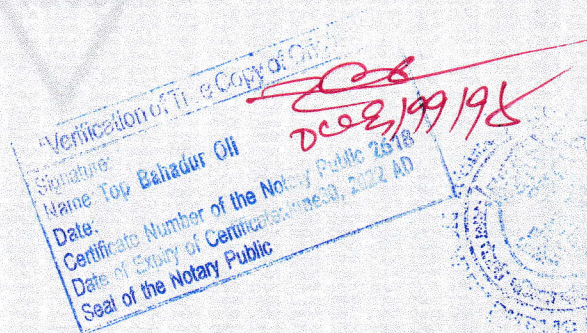 "Verification of True Copy of
Signature:
Name: Top Bahadur Oli
Date:
Certificate Number of the Notary Public 2618
Date of Expiry of Certificate: June 30, 2022 AD
Seal of the Notary Public